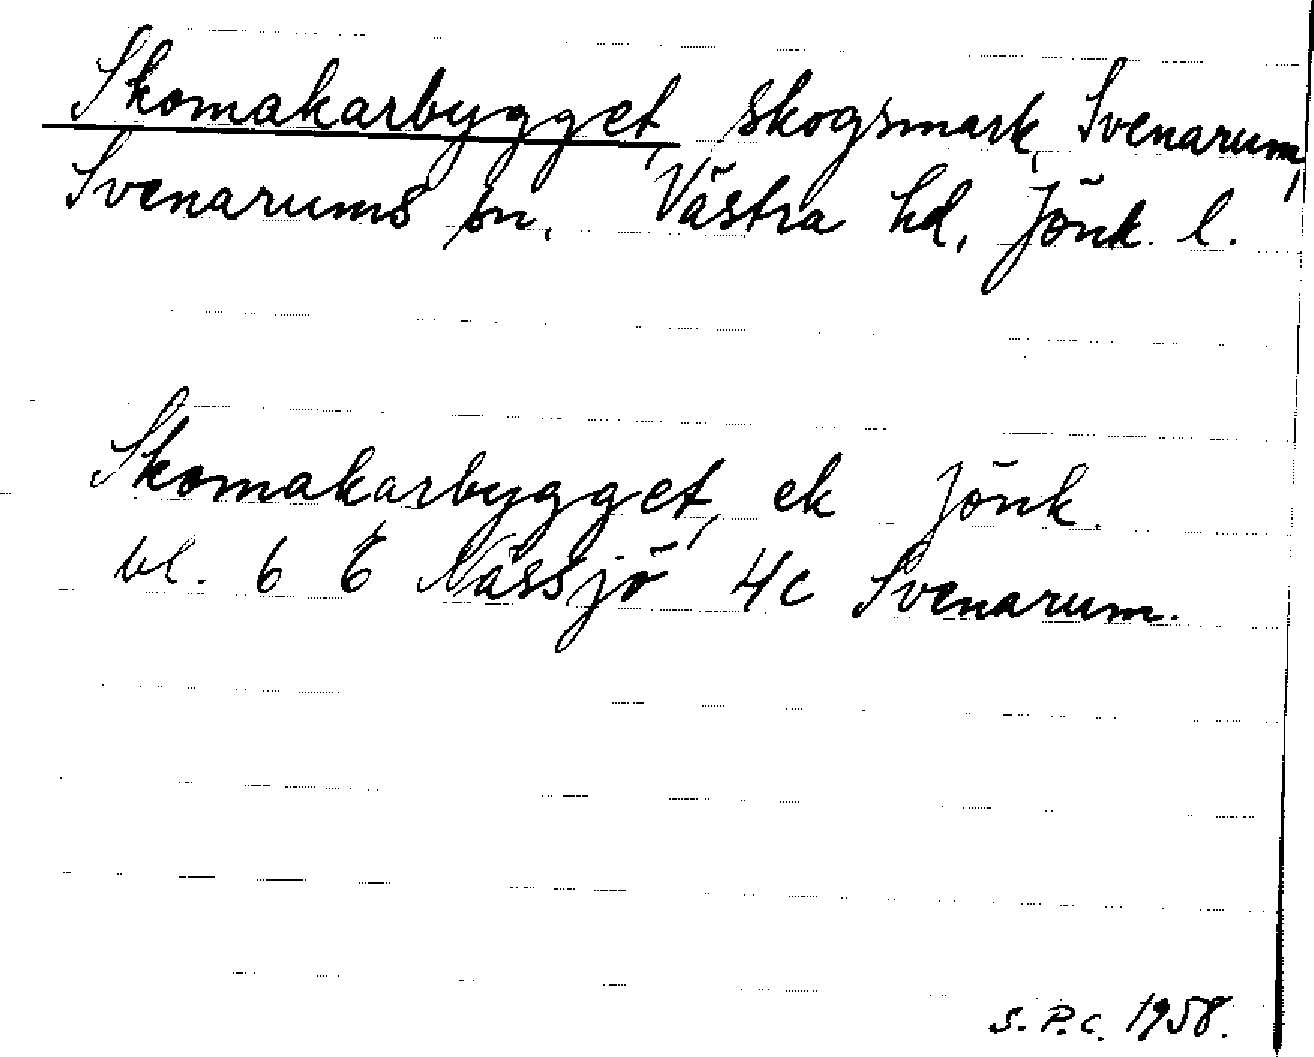 Skomakarbygget, skogsmark, Svenarum,
Svenarums sn. Västra hd, Jönk. l.
Skomakarbygget, ek Jönk.
bl. 6 E Nässjö 4c Svenarum.
S. P.C. 1958.